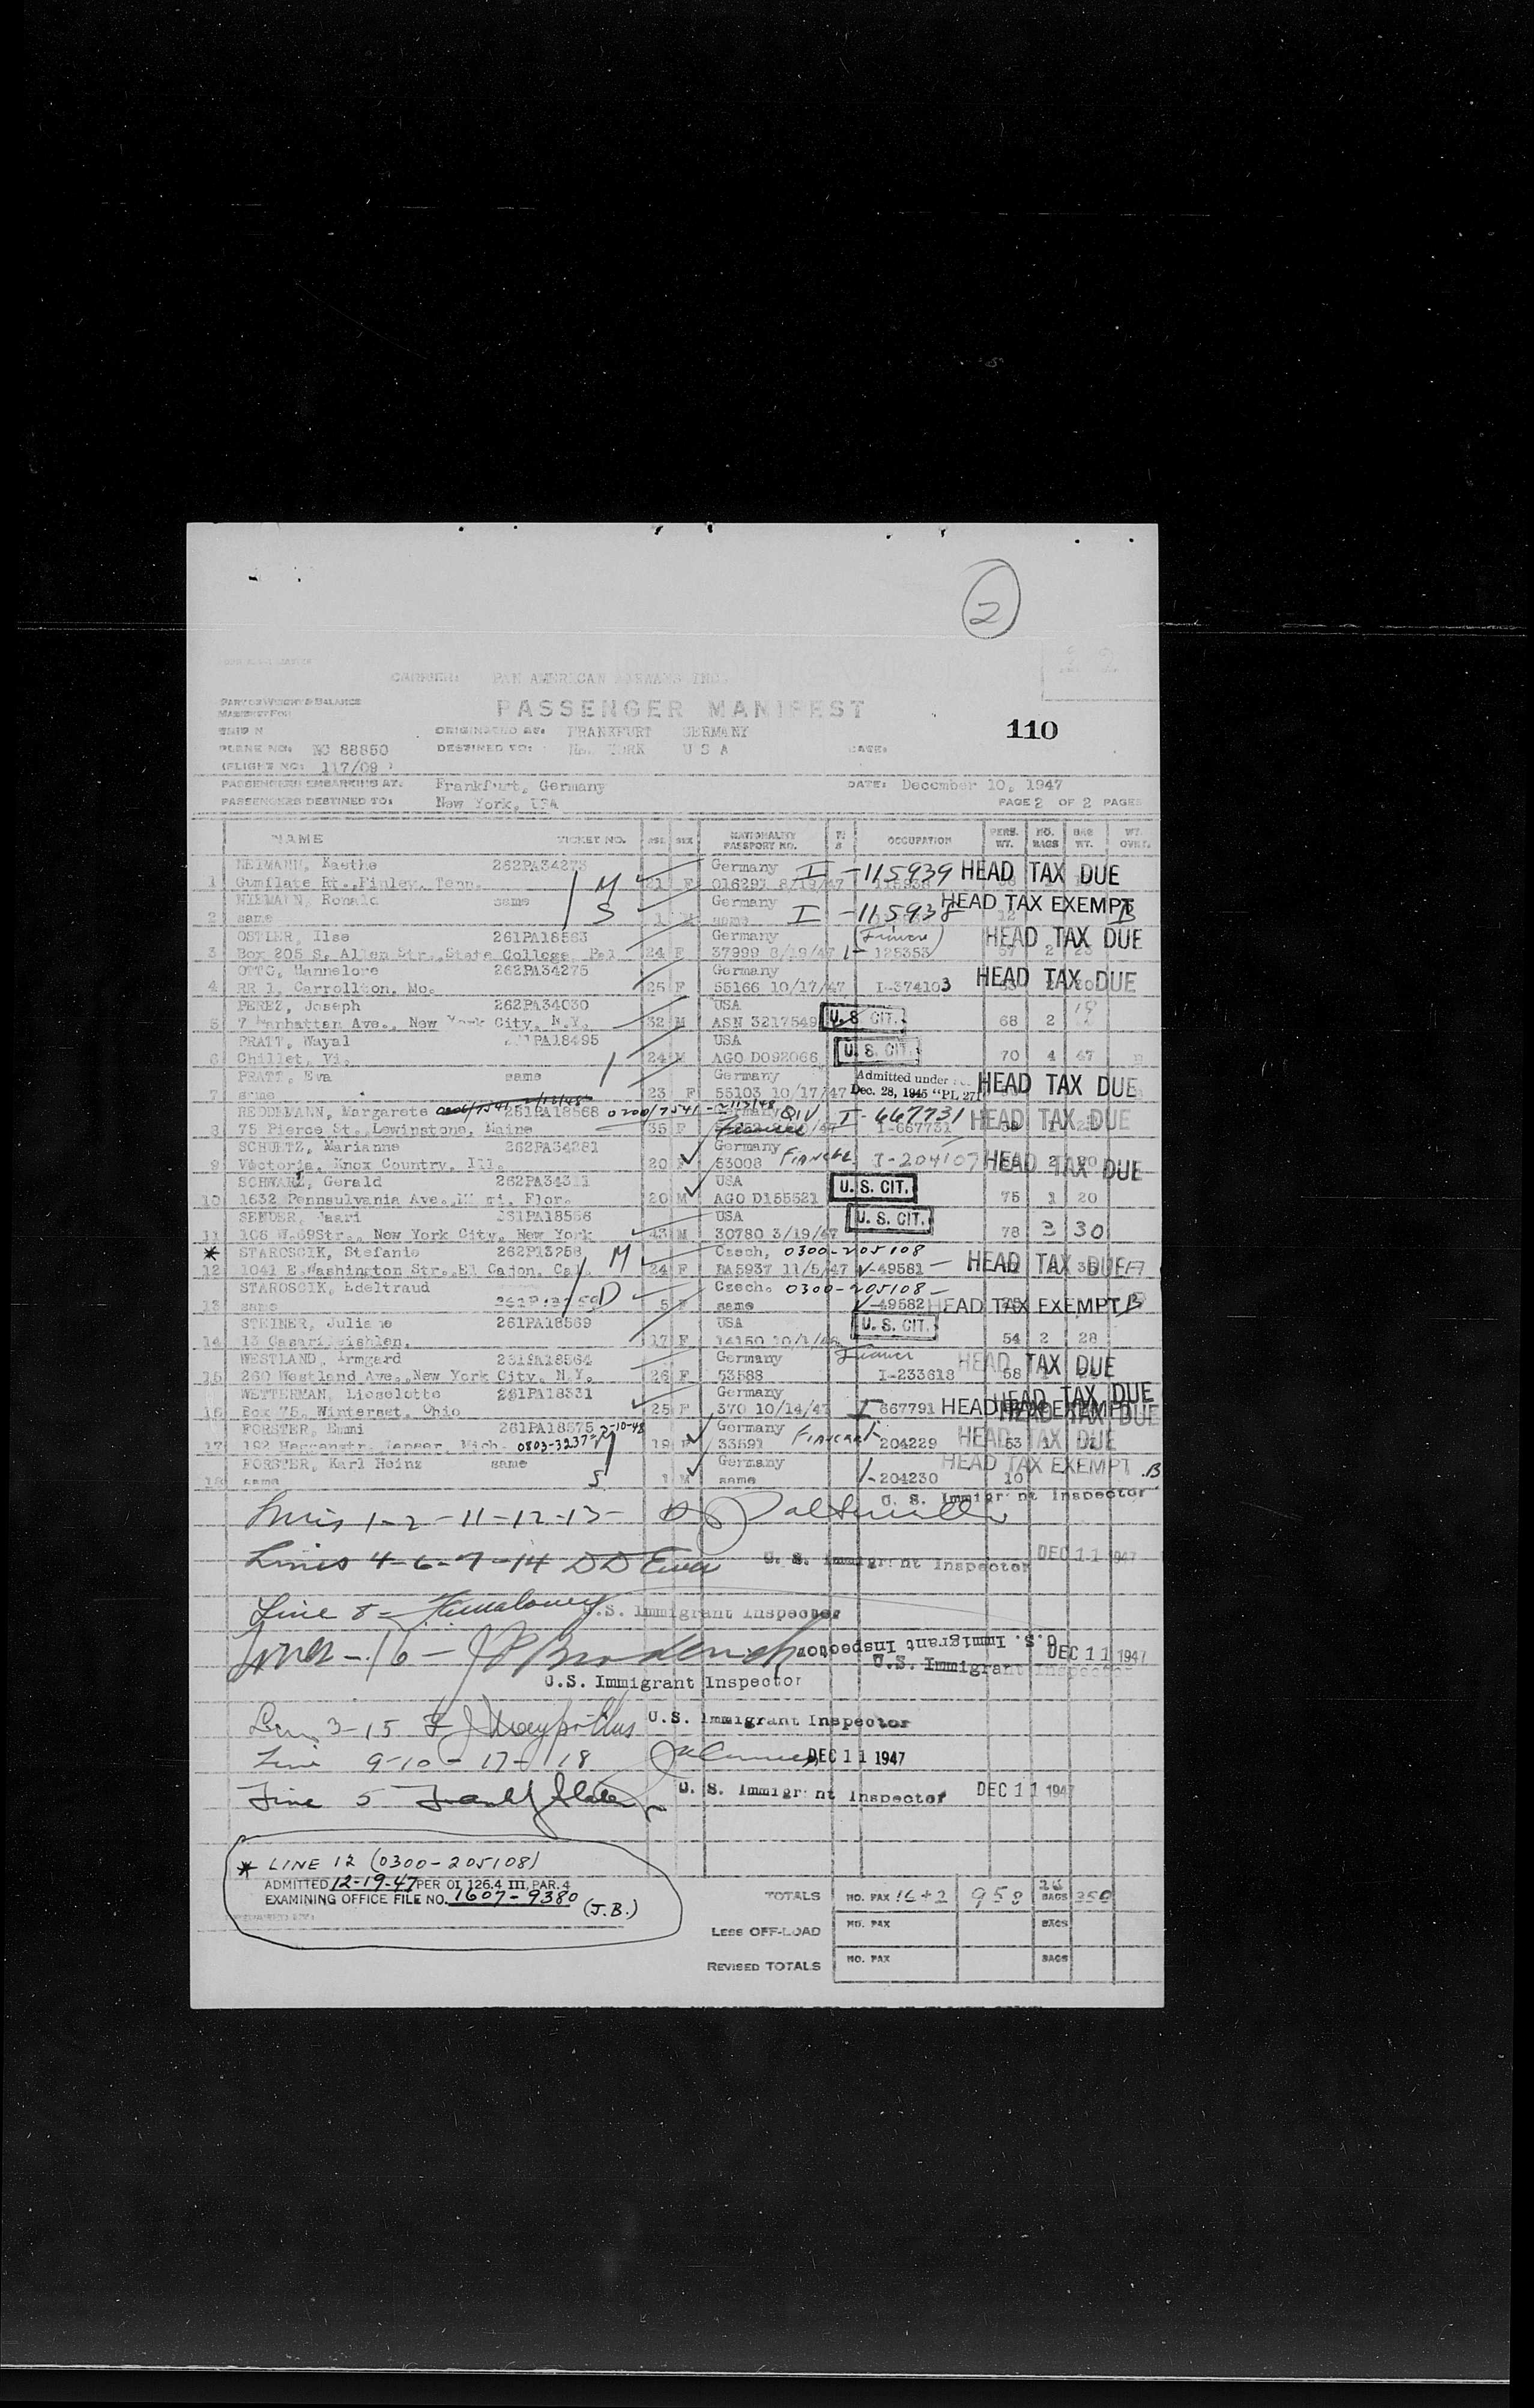 2
CARRIER: PAN AMERICAN AIRWAYS INC.
PART OF WEIGHT & BALANCE
MANIFEST FOR
PASSENGER MANIFEST
110
SHIP N
ORIGINATED AT: FRANKFURT GERMANY
PLANE NO: NC 88850
DESTINED TO: NEW YORK U S A
DATE:
(FLIGHT NO: 117/09 )
PASSENGERS EMBARKING AT: Frankfurt, Germany
DATE: December 10, 1947
PASSENGERS DESTINED TO: New York, USA
PAGE 2 OF 2 PAGES
NAME TICKET NO. AGE SEX NATIONALITY PASSPORT NO. OCCUPATION PERS. WT. NO. BAGS BAG WT. WT. OVRT.
NEIMANN, Kaethe 262PA34273 Germany I -115939 HEAD TAX DUE
1 Gumflate Rt., Finley, Tenn. M 21 F 016297 8/19/47
NIEMANN, Ronald same Germany HEAD TAX EXEMPT B
2 same S 1 same I -115938 12
OSTLER, Ilse 261PA18563 Germany HEAD TAX DUE
3 Box 205 S. Allen Str., State College, Pa. 24 F 37999 8/19/47 I- 125353
OTTO, Hannelore 262PA34275 Germany HEAD TAX DUE
4 RR 1, Carrollton, Mo. 25 F 55166 10/17/47 I-374103
PEREZ, Joseph 262PA34030 USA U.S. CIT. 19
5 7 Manhattan Ave., New York City, N.Y. 32 M ASN 3217549 68 2
PRATT, Wayal PA18495 USA U. S. CIT.
6 Chillet, Vi. 24 M AGO D092066 70 4 67
PRATT, Eva same Germany Admitted under HEAD TAX DUE
7 same 23 F 55103 10/17/47 Dec. 28, 1945 "PL 271"
REDDEMANN, Margarete 261PA18568 0200/7541 Germany QIV I-667731 HEAD TAX DUE
8 75 Pierce St., Lewinstone, Maine 35 F I-667731
SCHUETZ, Marianne 262PA34281 Germany
9 Victoria, Knox Country, Ill. 20 F 53008 FIANCEE I-204107 HEAD TAX DUE
SCHWARZ, Gerald 262PA34311 USA U. S. CIT.
10 1632 Pennsulvania Ave., Miami, Flor. 20 M AGO D155521 75 1 20
SENDER, Kaari 261PA18556 USA U. S. CIT.
11 106 W.69Str., New York City, New York 43 M 30780 3/19/47 78 3 30
* STAROSCIK, Stefanie 262P13258 M Czech, 0300-205108 HEAD TAX DUE
12 1041 E.Washington Str., El Cajon, Cal. 24 F BA5937 11/5/47 V-49581
STAROSCIK, Edeltraud Czech. 0300-205108
13 same D 5 F same V-49582 HEAD TAX EXEMPT B
STEINER, Juliane 261PA18569 USA U. S. CIT.
14 17 F 14150 54 2 28
WESTLAND, Irmgard 261PA18564 Germany HEAD TAX DUE
15 260 Westland Ave., New York City, N.Y. 26 F 53588 I-233618 58
WETTERMAN, Lieselotte 261PA18331 Germany HEAD TAX DUE
16 Box 75, Winterset, Ohio 25 F 370 10/14/47 I 667791 HEAD TAX EXEMPT
FORSTER, Emmi 261PA18575 2-10-48 Germany HEAD TAX DUE
17 Mich. 0803-3237 19 F 33591 FIANCEE 204229 53
FORSTER, Karl Heinz same Germany HEAD TAX EXEMPT B
18 same S 1 M same I-204230 10
U. S. Immigrant Inspector
Lines 1-2-11-12-13-
Lines 4-6-7-14 U. S. Immigrant Inspector DEC 11 1947
Line 8 - U.S. Immigrant Inspector
Line - 16 - U.S. Immigrant Inspector DEC 11 1947
U.S. Immigrant Inspector
U.S. Immigrant Inspector
Line 3-15 U.S. Immigrant Inspector
Line 9-10-17-18 DEC 11 1947
Line 5 U. S. Immigrant Inspector DEC 11 1947
* LINE 12 (0300-205108)
ADMITTED 12-19-47 PER OI 126.4 III, PAR. 4
EXAMINING OFFICE FILE NO. 1607-9380 (J.B.)
PREPARED BY:
TOTALS NO. PAX 16+2 958 BAGS 350
LESS OFF-LOAD NO. PAX BAGS
REVISED TOTALS NO. PAX BAGS